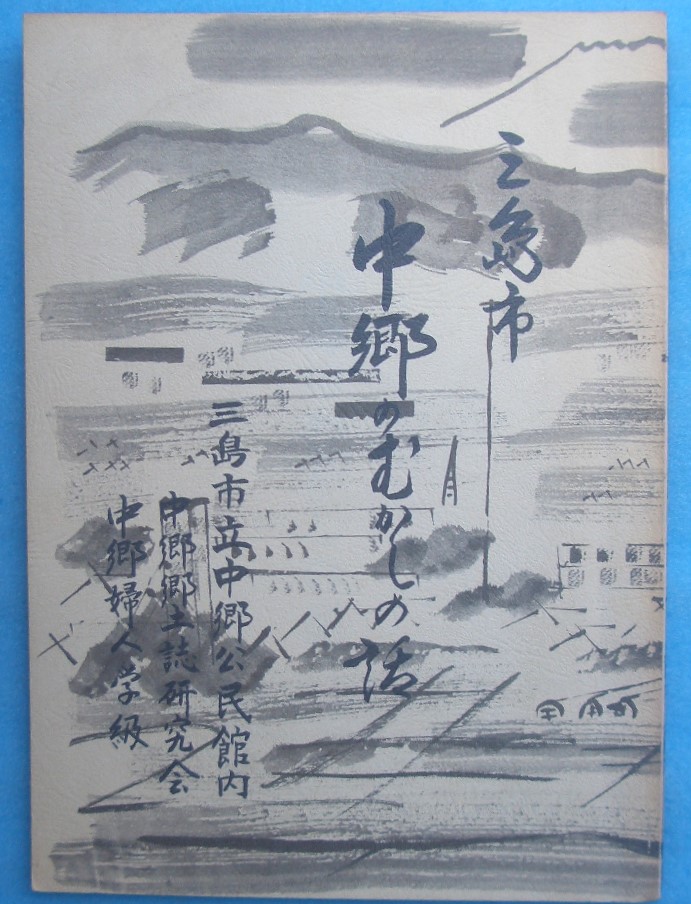 三島市
中郷のむかしの話
三島市立中郷公民館内
中郷郷土誌研究会
中郷婦人学級